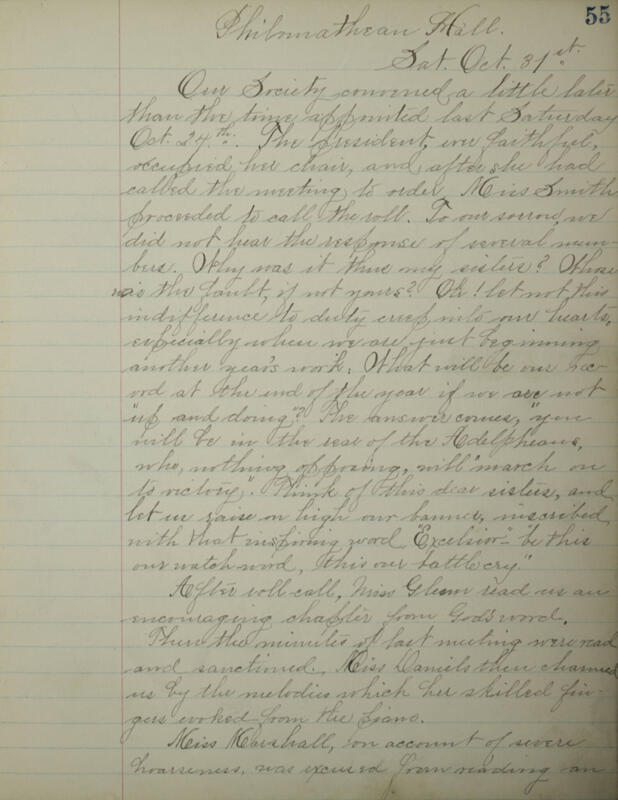 55
Philomathean Hall.
Sat. Oct. 31st.
Our Society convened a little later
than the time appointed last Saturday
Oct. 24th. The President, ever faithful,
occupied her chair, and after she had
called the meeting to order, Miss Smith
proceeded to call the roll. To our sorrow, we
did not hear the response of several mem-
bers. Why was it thus my sisters? Whose
was the fault, if not yours? Oh! let not this
indifference to duty creep into our hearts,
especially when we are just beginning
another year's work. What will be our rec-
ord at the end of the year if we are not
"up and doing"? The answer comes, "you
will be in the rear of the Adelpheans,
who, nothing opposing, will "march on
to victory". Think of this dear sisters, and
let us raise on high our banner, inscribed
with that inspiring word "Excelsior" - be this
our watch-word, this our battle cry."
After roll call, Miss Glenn read us an
encouraging chapter from God's word.
Then the minutes of last meeting were read
and sanctioned. Miss Daniels then charmed
us by the melodies which her skilled fin-
gers evoked from the Piano.
Miss Marshall, on account of severe
hoarseness, was excused from reading an